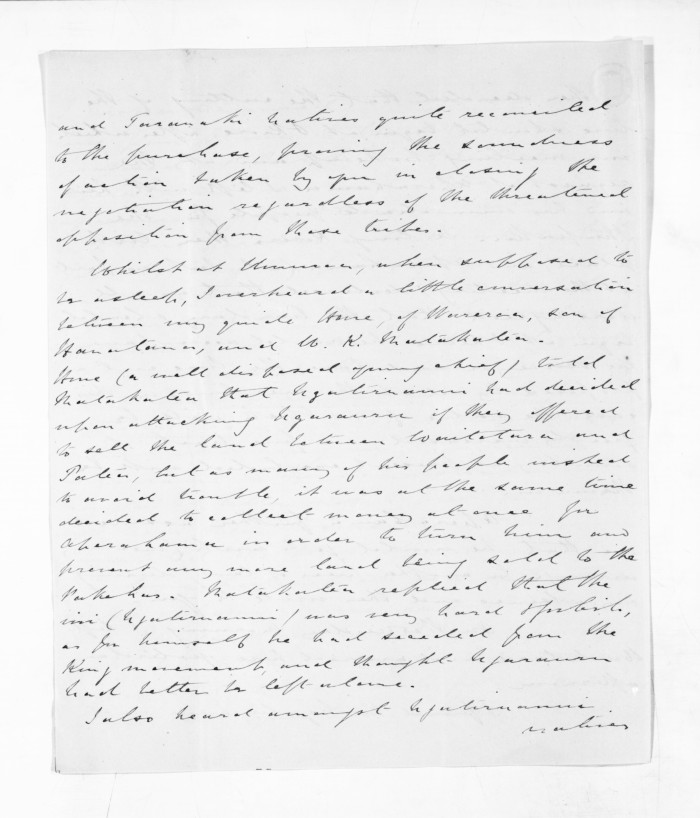 and Taranaki Natives quite reconciled
to the purchase, proving the soundness
of action taken by you in closing the
negotiation regardless of the threatened
opposition from those tribes.
Whilst at Umuroa, when supposed to
be asleep, I overheard a little conversation
between my guide Hone, of Wareroa, son of
Hanataua, and W. K. Matakatea.
Hone (a well disposed young chief) told
Matakatea that Ngatiruanui had decided
upon attacking Ngarauru if they offered
to sell the land between Waitotara and
Patea, but as many of his people wished
to avoid trouble, it was at the same time
decided to collect money at once for
Aperahama in order to turn him and
prevent any more land being sold to the
Pakehas. Matakatea replied that the
iwi (Ngatiruanui) was very hard & foolish,
as for himself he had seceded from the
King movement, and thought Ngarauru
had better be left alone.
I also heard amongst Ngatiruanui
natives